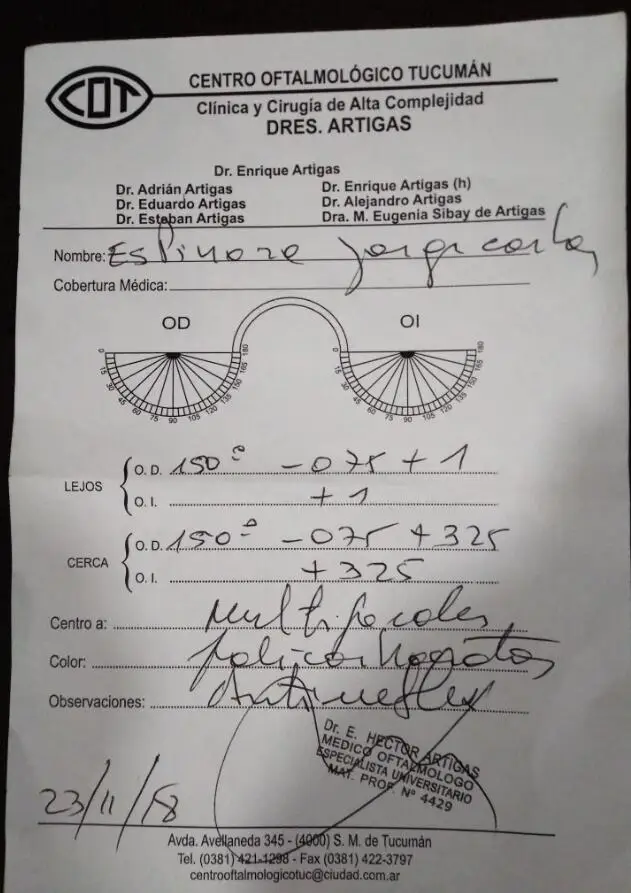 COT
CENTRO OFTALMOLÓGICO TUCUMÁN
Clínica y Cirugía de Alta Complejidad
DRES. ARTIGAS
Dr. Enrique Artigas
Dr. Adrián Artigas Dr. Enrique Artigas (h)
Dr. Eduardo Artigas Dr. Alejandro Artigas
Dr. Esteban Artigas Dra. M. Eugenia Sibay de Artigas
Nombre: Espinoza Jorge Carlos
Cobertura Médica:
OD OI
0 15 30 45 60 75 90 105 120 135 150 165 180
0 15 30 45 60 75 90 105 120 135 150 165 180
LEJOS
O. D. 150º -075 +1
O. I. +1
CERCA
O. D. 150º -075 +325
O. I. +325
Centro a: Multifocales
Color: policarbonatos
Observaciones: Antireflex
Dr. E. HECTOR ARTIGAS
MEDICO OFTALMOLOGO
ESPECIALISTA UNIVERSITARIO
MAT. PROF. Nº 4429
23/11/18
Avda. Avellaneda 345 - (4000) S. M. de Tucumán
Tel. (0381) 421-1298 - Fax (0381) 422-3797
centrooftalmologicotuc@ciudad.com.ar